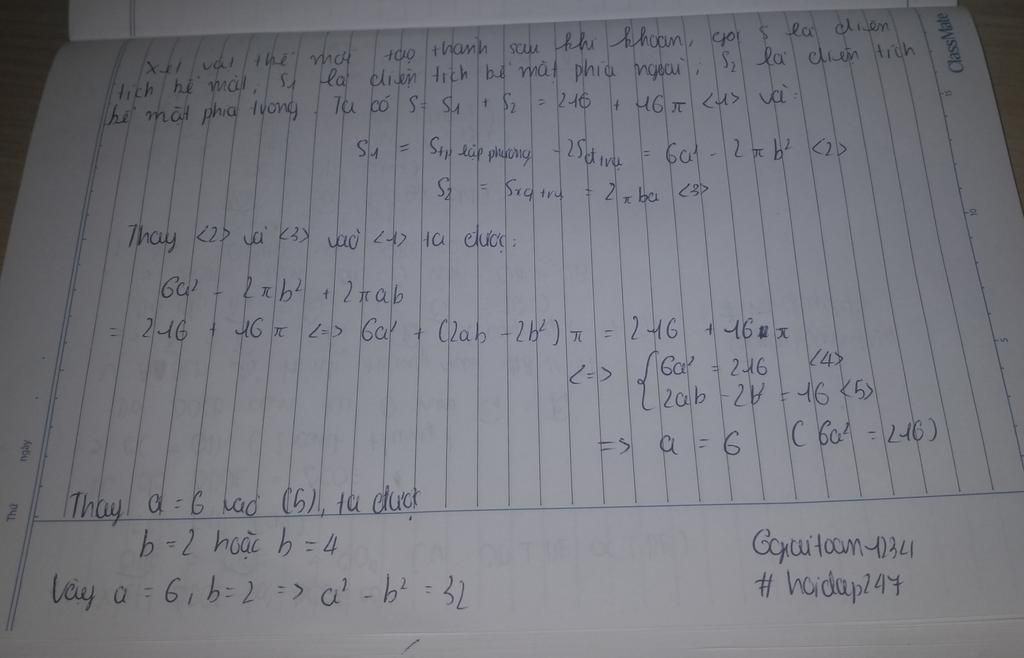 Xét vật thể mới tạo thành sau khi khoan, gọi S là diện
tích bề mặt, S1 là diện tích bề mặt phía ngoài; S2 là diện tích
bề mặt phía trong. Ta có S = S1 + S2 = 216 + 16π <1> và:
S1 = Stp lập phương - 2Sđ trụ = 6a² - 2πb² <2>
S2 = Sxq trụ = 2πba <3>
Thay <2> và <3> vào <1> ta được:
6a² - 2πb² + 2πab
= 216 + 16π <=> 6a² + (2ab - 2b²)π = 216 + 16π
<=> { 6a² = 216 <4>
2ab - 2b² = 16 <5>
=> a = 6 (6a² = 216)
Thay a = 6 vào (5), ta được
b = 2 hoặc b = 4
Vậy a = 6, b = 2 => a² - b² = 32
# hoidap247
ClassMate
ngày
Thứ